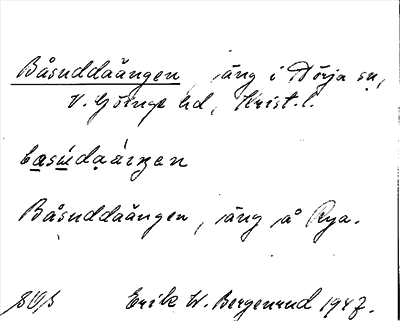 Båsuddaängen, äng i Dörja sn,
V. Göinge hd, Krist. l.
Båsuddaängen, äng å Rya.
Erik W. Bergenrud 1947.